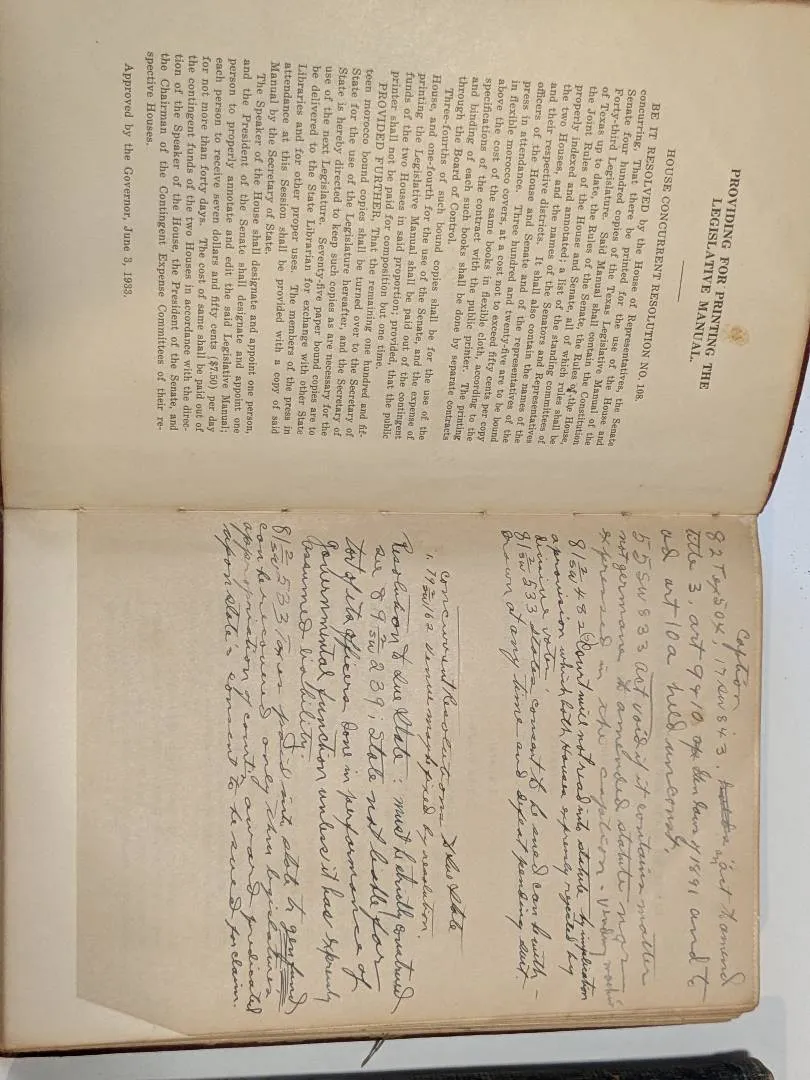 PROVIDING FOR PRINTING THE
LEGISLATIVE MANUAL.
HOUSE CONCURRENT RESOLUTION NO. 108.
BE IT RESOLVED by the House of Representatives, the Senate
concurring, That there be printed for the use of the House and
Senate four hundred copies of the Texas Legislative Manual of the
Forty-third Legislature. Said Manual shall contain the Constitution
of Texas up to date, the Rules of the Senate, the Rules of the House,
the Joint Rules of the House and Senate, all of which rules shall be
properly indexed and annotated; a list of the standing committees of
the two Houses, and the names of the Senators and Representatives
and their respective districts. It shall also contain the names of the
officers of the House and Senate and of the representatives of the
press in attendance. Three hundred and twenty-five are to be bound
in flexible morocco covers, at a cost not to exceed fifty cents per copy
above the cost of the same books in flexible cloth, according to the
specifications of the contract with the public printer. The printing
and binding of each such books shall be done by separate contracts
through the Board of Control.
Three-fourths of such bound copies shall be for the use of the
House, and one-fourth for the use of the Senate, and the expense of
printing the Legislative Manual shall be paid out of the contingent
funds of the two Houses in said proportion; provided, that the public
printer shall not be paid for composition but one time.
PROVIDED FURTHER, That the remaining one hundred and fif-
teen morocco bound copies shall be turned over to the Secretary of
State for the use of the Legislature hereafter, and the Secretary of
State is hereby directed to keep such copies as are necessary for the
use of the next Legislature. Seventy-five paper bound copies are to
be delivered to the State Librarian for exchange with other State
Libraries and for other proper uses. The members of the press in
attendance at this Session shall be provided with a copy of said
Manual by the Secretary of State.
The Speaker of the House shall designate and appoint one person,
and the President of the Senate shall designate and appoint one
person to properly annotate and edit the said Legislative Manual;
each person to receive seven dollars and fifty cents ($7.50) per day
for not more than forty days. The cost of same shall be paid out of
the contingent funds of the two Houses in accordance with the direc-
tion of the Speaker of the House, the President of the Senate, and
the Chairman of the Contingent Expense Committees of their re-
spective Houses.
Approved by the Governor, June 3, 1933.
Caption
82 Tex 504, 17 SW 843, act to amend
title 3, art 9 & 10 Gen laws of 1891 and to
ad art 10a held unconst.
55 SW 833 act void if it contains matter
not germane to amended statute nor
expressed in the caption
81 2 SW 482 Court will not read into statute by implication
a provision which both Houses expressly rejected by
decisive vote.
81 2 SW 533 States consent to be sued can be with-
drawn at any time and defeat pending suit
Concurrent Resolutions to Sue State
1. 79 2 SW 162 venue may be fixed by resolution.
Resolution to Sue State: must be strictly construed
see 89 2 SW 239; State not liable for
tort of its officers done in performance of
governmental function unless it has expressly
assumed liability.
81 2 SW 533 Taxes paid into state to gen fund
can be recovered only thru legislatures
appropriation of court's award predicated
upon state's consent to be sued for claim.